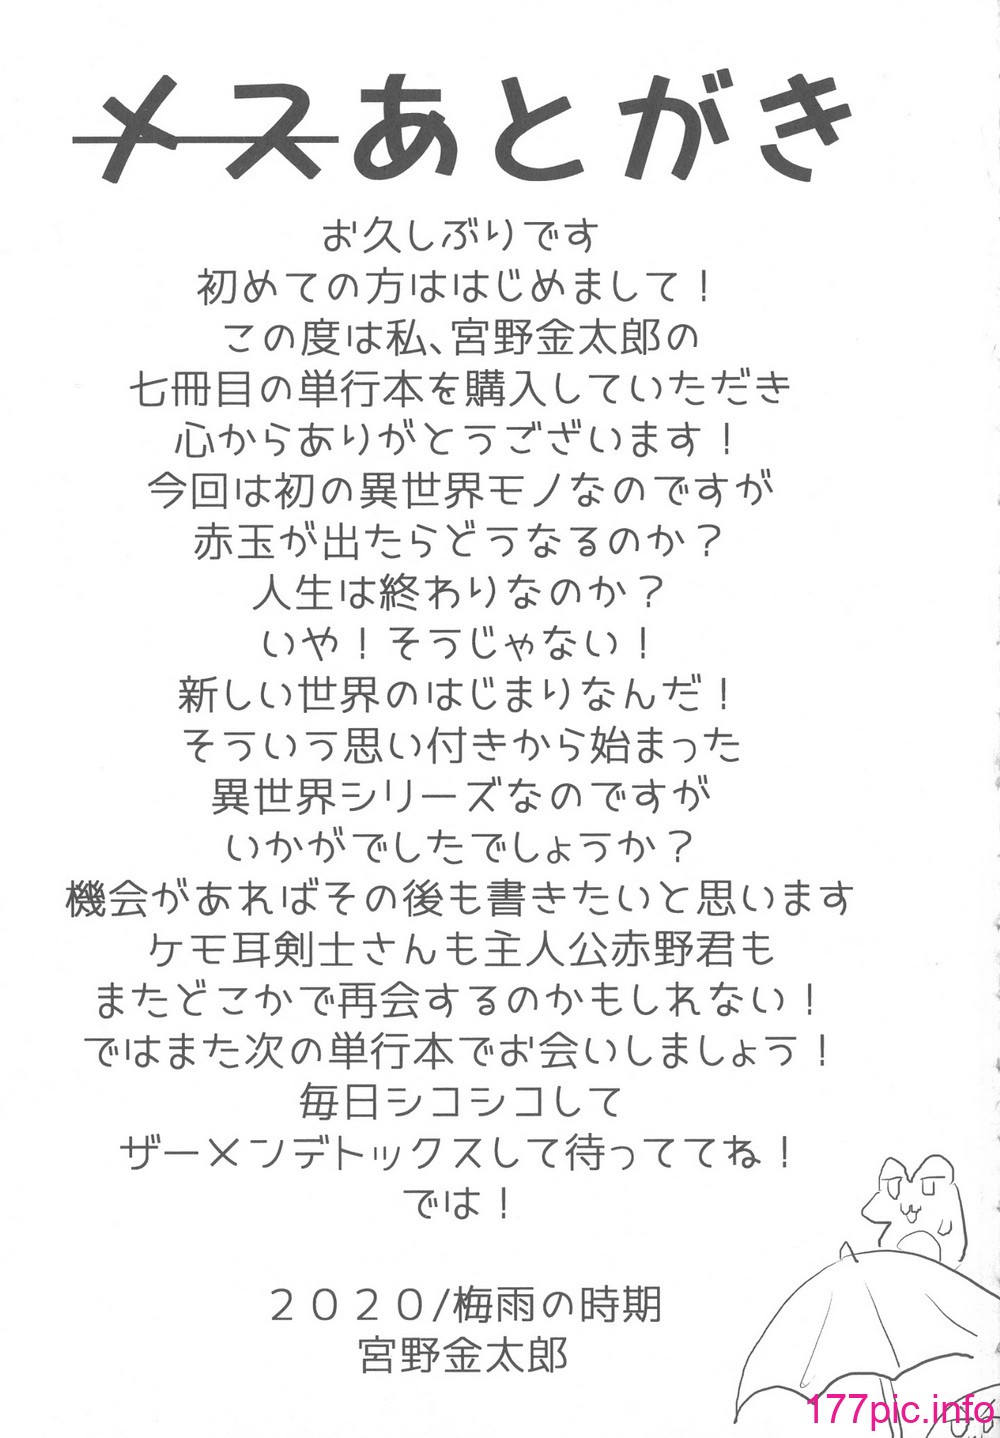 メスあとがき
お久しぶりです
初めての方ははじめまして！
この度は私、宮野金太郎の
七冊目の単行本を購入していただき
心からありがとうございます！
今回は初の異世界モノなのですが
赤玉が出たらどうなるのか？
人生は終わりなのか？
いや！そうじゃない！
新しい世界のはじまりなんだ！
そういう思い付きから始まった
異世界シリーズなのですが
いかがでしたでしょうか？
機会があればその後も書きたいと思います
ケモ耳剣士さんも主人公赤野君も
またどこかで再会するのかもしれない！
ではまた次の単行本でお会いしましょう！
毎日シコシコして
ザーメンデトックスして待っててね！
では！
２０２０/梅雨の時期
宮野金太郎
177pic.info